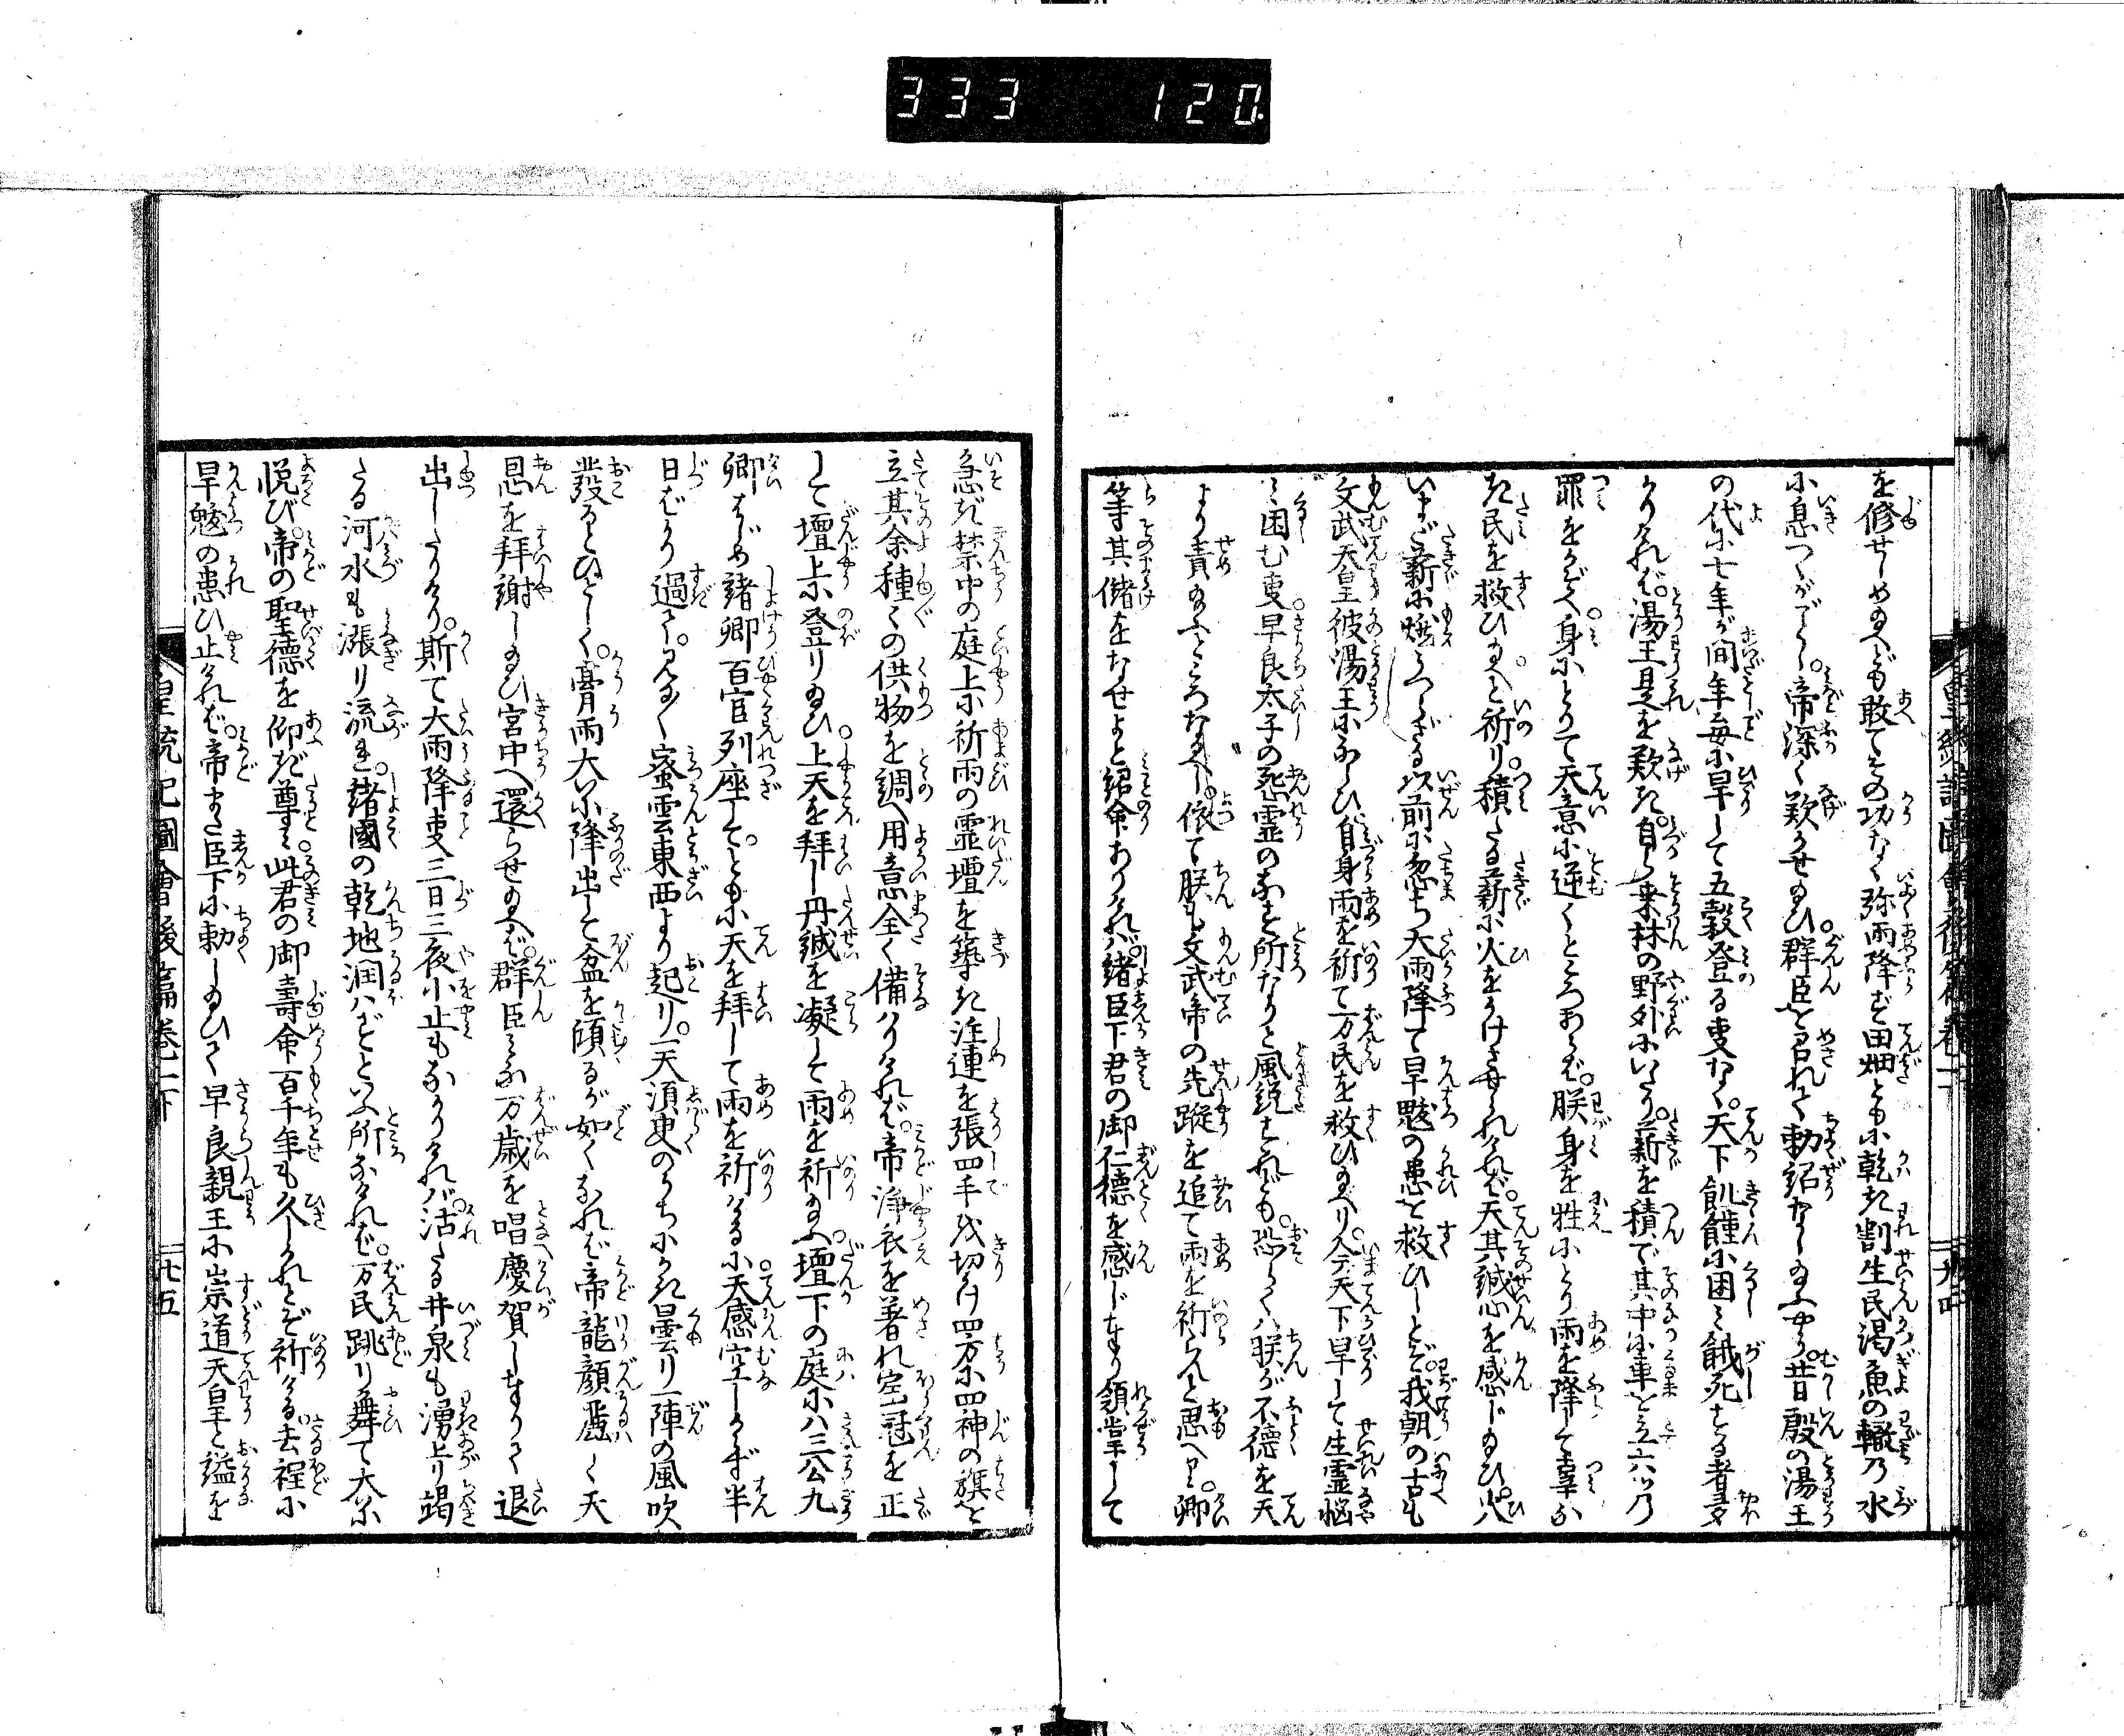 333 120
を修せしめ給へども敢て其功なく弥雨降ず田畑ともに乾き割生民渇魚の轍乃水
に息つくがごとし。帝深く歎かせ給ひ。群臣を召れて勅詔なし給ふやう。昔殷の湯王
の代に七年が間年毎に旱して五穀登る事なく。天下飢饉に困ミ餓死する者多
かりけれバ。湯王是を歎き。自ら桑林の野外にいたり。薪を積で其中に車を立六ツ乃
罪をかぞへ身にとりて天意に逆くところあらバ。朕身を牲にとり雨を降して辜な
き民を救ひ給へと祈り。積たる薪に火をかけさせられけれバ。天其誠心を感じ給ひ。火
いまだ薪に燃うつらざる以前に忽ち大雨降て旱魃の患を救ひしとぞ。我朝の古も
文武天皇彼湯王に傚ひ自身雨を祈て万民を救ひ給へり。今天下旱して生霊悩
ミ困む事早良太子の怨霊のなす所なりと風説すれども。恐らくハ朕が不徳を天
より責給ふところなるべし。依て朕も文武帝の先蹤を追て雨を祈らんと思へり。卿
等其儲をなせよと紹命ありけれバ。諸臣下君の御仁徳を感じ奉り領掌して
急ぎ禁中の庭上に祈雨の霊壇を築き注連を張四手を切かけ四方に四神の旗を
立其余種々の供物を調へ用意全く備ハりけれバ。帝浄衣を著れ宝冠を正
して壇上に登り給ひ。上天を拝し丹誠を凝して雨を祈給ふ。壇下の庭にハ三公九
卿はじめ諸卿百官列座して。ともに天を拝して雨を祈ける小天感空しからず半
日ばかり過て。忽ち密雲東西より起り。一天須臾のうちにかき曇り一陣の風吹
発るとひとしく。膏雨大いに降出して盆を傾るが如くなれバ帝龍顔麗しく天
恩を拝謝し給ひ宮中へ還らせ給へバ。群臣ミな万歳を唱慶賀し奉りて退
出したりけり。斯て大雨降事三日三夜小止もなかりけれバ。涸たる井泉も湧上り竭
たる河水も漲り流れ。諸國の乾地潤ハずといふ所なけれバ。万民跳り舞て大に
悦び。帝の聖徳を仰ぎ尊ミ。此君の御壽命百千年も久しかれとぞ祈ける。去程に
旱魃の患ひ止けれバ。帝また臣下に勅し給ひて早良親王に崇道天皇と謚を
皇統記圖會後篇巻二下
二十五